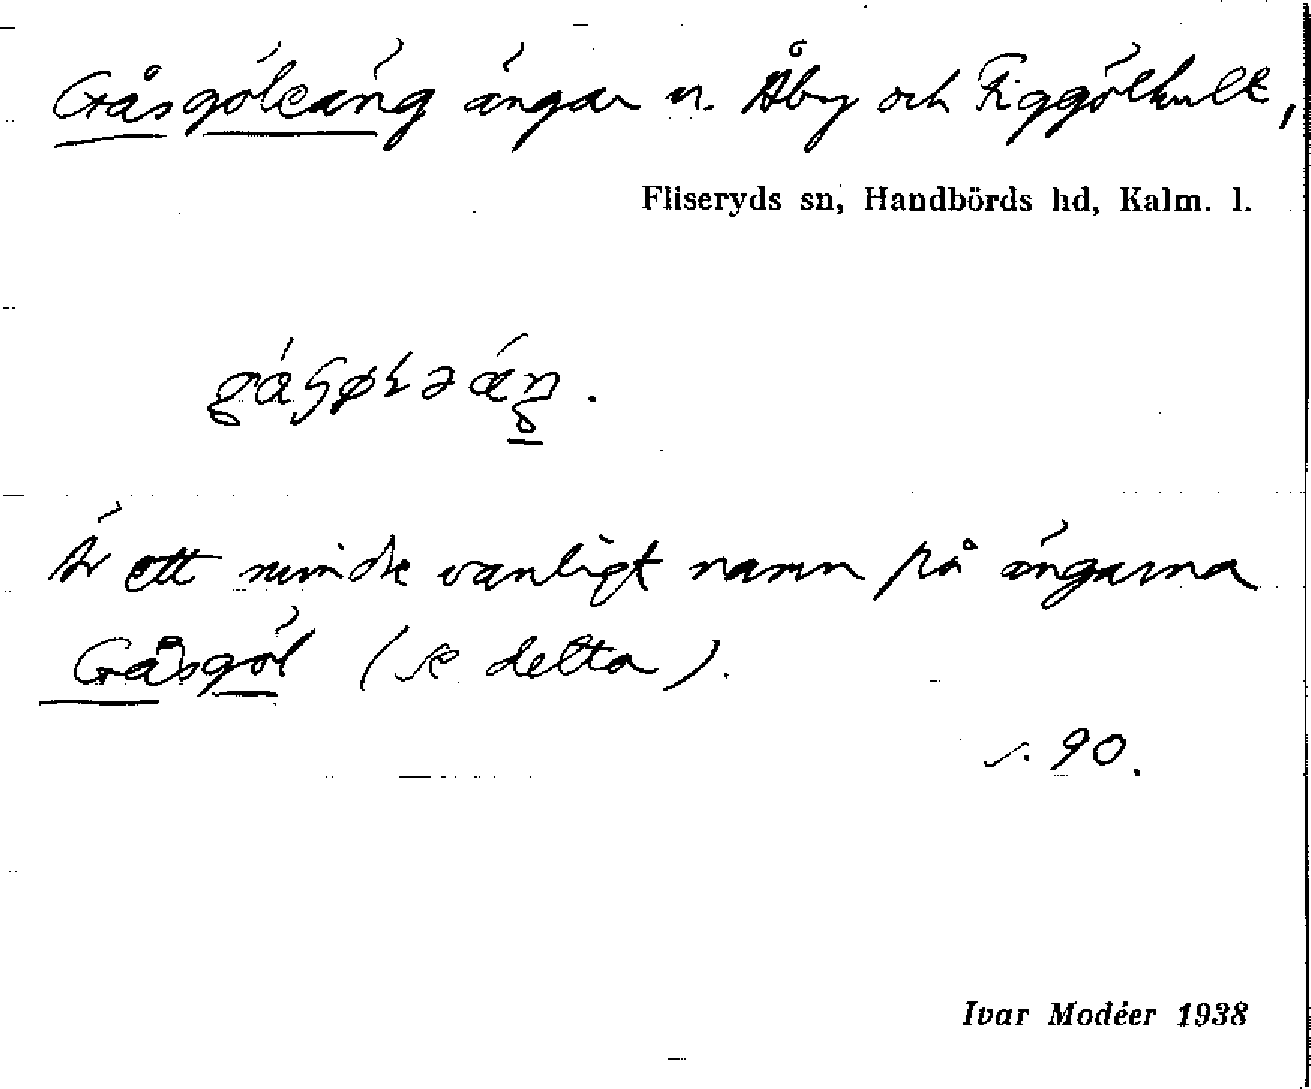 Gåsgöleäng ängar u. Åby och Figgölhult,
Fliseryds sn, Handbörds hd, Kalm. l.
Är ett mindre vanligt namn på ängarna
Gåsgöl (se detta).
s. 90.
Ivar Modéer 1938